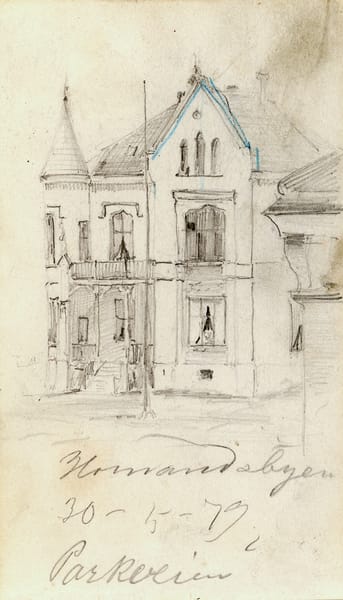 Homandsbyen
30 - 5 - 79
Parkveien